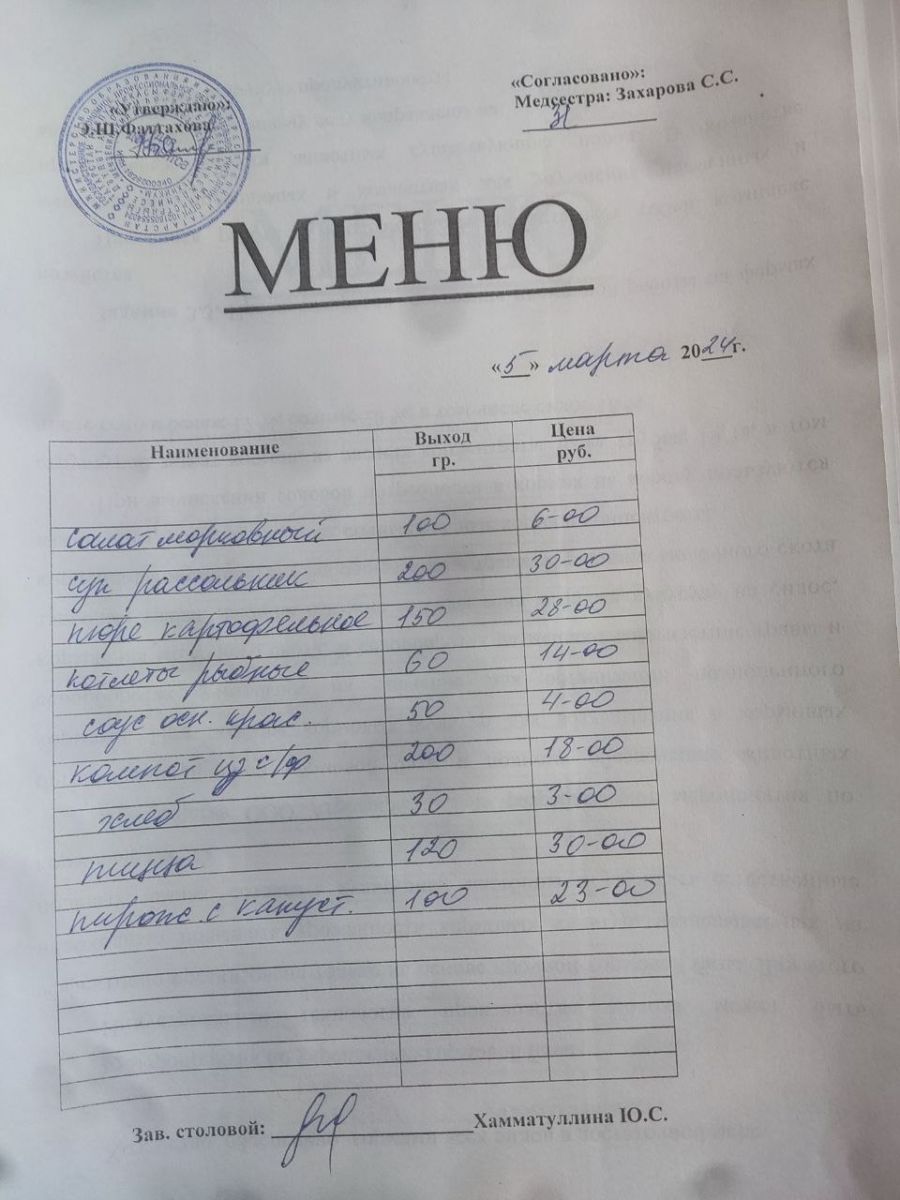 «Утверждаю»:
Э.Ш.Фаттахова
«Согласовано»:
Медсестра: Захарова С.С.
МЕНЮ
«5» марта 2024г.
Наименование Выход гр. Цена руб.
салат морковный 100 6-00
суп рассольник 200 30-00
пюре картофельное 150 28-00
котлеты рыбные 60 14-00
соус осн. крас. 50 4-00
компот из с/ф 200 18-00
хлеб 30 3-00
пицца 120 30-00
пирож. с капуст. 100 23-00
Зав. столовой: Хамматуллина Ю.С.